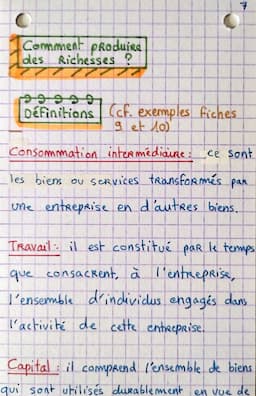 7
Commment produire
des Richesses ?
Définitions (cf. exemples fiches
9 et 10)
Consommation intermédiaire : ce sont
les biens ou services transformés par
une entreprise en d'autres biens.
Travail : il est constitué par le temps
que consacrent, à l'entreprise,
l'ensemble d'individus engagés dans
l'activité de cette entreprise.
Capital : il comprend l'ensemble de biens
qui sont utilisés durablement en vue de